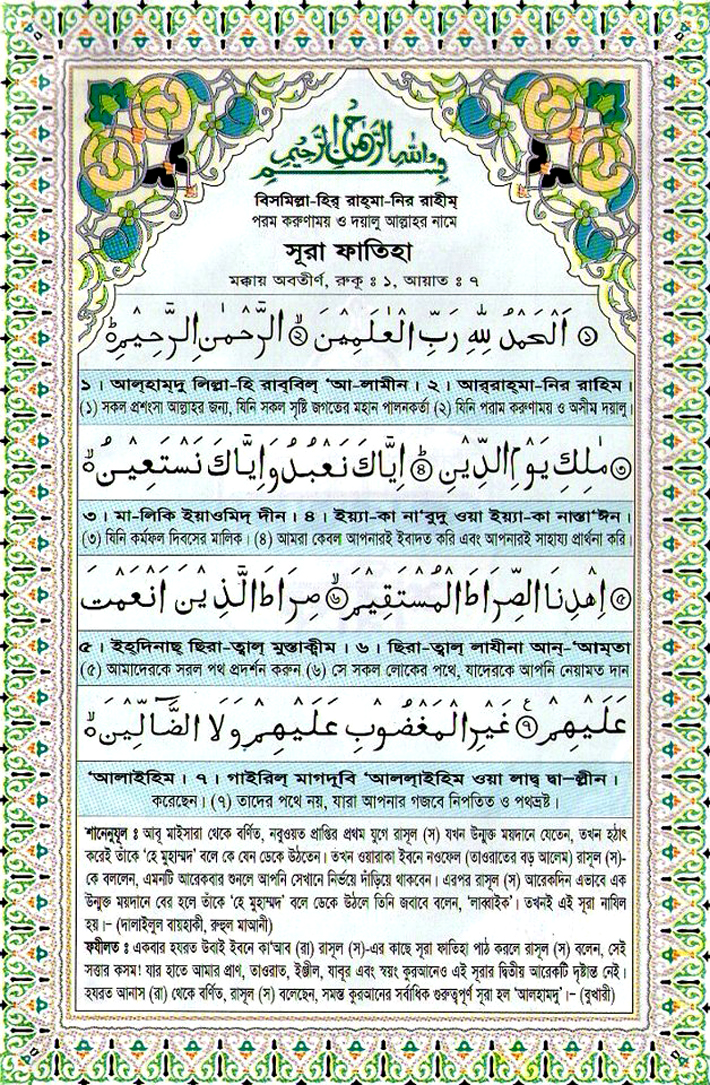 بسم الله الرحمن الرحيم
বিসমিল্লা-হির্ রাহ্‌মা-নির রাহীম্
পরম করুণাময় ও দয়ালু আল্লাহর নামে
সূরা ফাতিহা
মক্কায় অবতীর্ণ, রুকু : ১, আয়াত : ৭
১ اَلْحَمْدُ لِلّٰهِ رَبِّ الْعٰلَمِيْنَ ۙ ২ الرَّحْمٰنِ الرَّحِيْمِ ۙ
১। আল্‌হাম্‌দু লিল্লা-হি রাব্‌বিল্ ‘আ-লামীন। ২। আর্‌রাহ্‌মা-নির রাহিম।
(১) সকল প্রশংসা আল্লাহর জন্য, যিনি সকল সৃষ্টি জগতের মহান পালনকর্তা (২) যিনি পরাম করুণাময় ও অসীম দয়ালু।
৩ مٰلِكِ يَوْمِ الدِّيْنِ ؕ ৪ اِيَّاكَ نَعْبُدُ وَاِيَّاكَ نَسْتَعِيْنُ ؕ
৩। মা-লিকি ইয়াওমিদ্ দীন। ৪। ইয়্যা-কা না‘বুদু ওয়া ইয়্যা-কা নাস্তা‘ঈন।
(৩) যিনি কর্মফল দিবসের মালিক। (৪) আমরা কেবল আপনারই ইবাদত করি এবং আপনারই সাহায্য প্রার্থনা করি।
৫ اِهْدِنَا الصِّرَاطَ الْمُسْتَقِيْمَ ۙ ৬ صِرَاطَ الَّذِيْنَ اَنْعَمْتَ
৫। ইহ্‌দিনাছ্ ছিরা-ত্বাল্ মুস্তাক্বীম। ৬। ছিরা-ত্বাল্ লাযীনা আন্-‘আম্‌তা
(৫) আমাদেরকে সরল পথ প্রদর্শন করুন (৬) সে সকল লোকের পথে, যাদেরকে আপনি নেয়ামত দান
عَلَيْهِمْ ৭ غَيْرِ الْمَغْضُوْبِ عَلَيْهِمْ وَلَا الضَّآلِّيْنَ ۙ
‘আলাইহিম। ৭। গাইরিল্ মাগদূবি ‘আলল্‌াইহিম ওয়া লাদ্ব দ্বা–ল্লীন।
করেছেন। (৭) তাদের পথে নয়, যারা আপনার গজবে নিপতিত ও পথভ্রষ্ট।
শানেনুযূল : আবূ মাইসারা থেকে বর্ণিত, নবুওয়ত প্রাপ্তির প্রথম যুগে রাসূল (স) যখন উন্মুক্ত ময়দানে যেতেন, তখন হঠাৎ
করেই তাঁকে ‘হে মুহাম্মদ’ বলে কে যেন ডেকে উঠতেন। তখন ওয়ারাকা ইবনে নওফেল (তাওরাতের বড় আলেম) রাসূল (স)-
কে বললেন, এমনটি আরেকবার শুনলে আপনি সেখানে নির্ভয়ে দাঁড়িয়ে থাকবেন। এরপর রাসূল (স) আরেকদিন এভাবে এক
উন্মুক্ত ময়দানে বের হলে তাঁকে ‘হে মুহাম্মদ’ বলে ডেকে উঠলে তিনি জবাবে বলেন, ‘লাব্বাইক’। তখনই এই সূরা নাযিল
হয়।– (দালাইলুল বায়হাকী, রুহুল মাআনী)
ফযীলত : একবার হযরত উবাই ইবনে কা‘আব (রা) রাসূল (স)-এর কাছে সূরা ফাতিহা পাঠ করলে রাসূল (স) বলেন, সেই
সত্তার কসম! যার হাতে আমার প্রাণ, তাওরাত, ইঞ্জীল, যাবূর এবং স্বয়ং কুরআনেও এই সূরার দ্বিতীয় আরেকটি দৃষ্টান্ত নেই।
হযরত আনাস (রা) থেকে বর্ণিত, রাসূল (স) বলেছেন, সমস্ত কুরআনের সর্বাধিক গুরুত্বপূর্ণ সূরা হল ‘আলহামদু’।– (বুখারী)